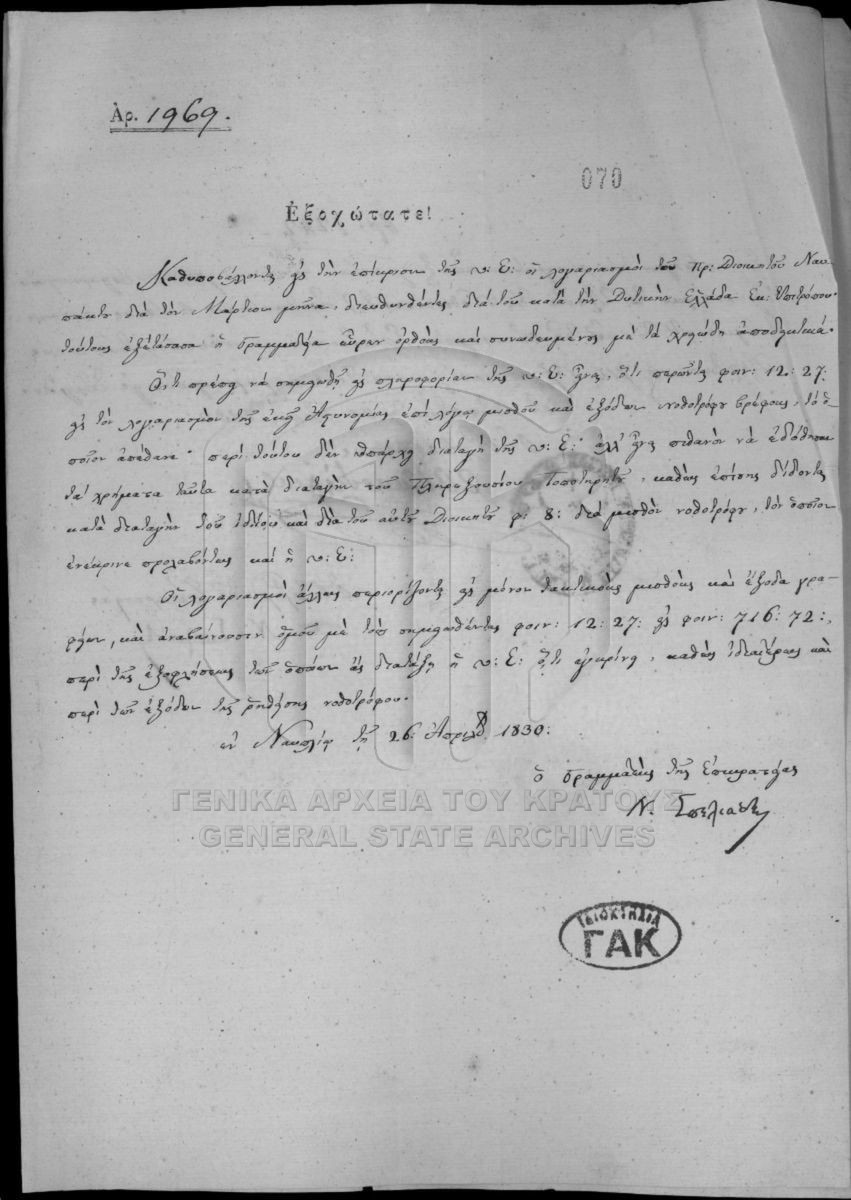 Ἀρ. 1969.
070
Ἐξοχώτατε!
Καθυποβάλλονται εἰς τὴν ἐπίκρισιν τῆς υ: Ε: οἱ λογαριασμοὶ τοῦ πρ: Διοικητοῦ Ναυ-
πάκτου διὰ τὸν Μάρτιον μῆνα, διευθυνθέντες διὰ τοῦ κατὰ τὴν Δυτικὴν Ἑλλάδα Ἐκ: Ἐπιτρόπου·
τούτους ἐξετάσασα ἡ Γραμματεία εὗρεν ὀρθοὺς καὶ συνωδευμένους μὲ τὰ χρειώδη ἀποδεικτικά.
Ὅ,τι πρέπει νὰ σημειωθῇ εἰς πληροφορίαν τῆς υ: Ε: εἶναι, ὅτι περῶνται φοιν: 12:27:
εἰς τὸν λογαριασμὸν τῆς ἐκεῖ Ἀστυνομίας ἐπὶ λόγῳ μισθοῦ καὶ ἐξόδων νοθοτρόφου βρέφους, τὸ ὁ-
ποῖον ἀπέθανε· περὶ τούτου δὲν ὑπάρχει διαταγὴ τῆς υ: Ε: ἀλλ' εἶναι πιθανὸν νὰ ἐδόθησαν
τὰ χρήματα ταῦτα κατὰ διαταγὴν τοῦ Πληρεξουσίου Τοποτηρητοῦ, καθὼς ἐπίσης δίδονται
κατὰ διαταγὴν τοῦ ἰδίου καὶ διὰ τοῦ αὐτοῦ Διοικητοῦ φ: 8: διὰ μισθὸν νοθοτρόφου, τὸν ὁποῖον
ἐνέκρινε προλαβόντως καὶ ἡ υ: Ε:
Οἱ λογαριασμοὶ ἄλλως περιορίζονται εἰς μόνον τακτικοὺς μισθοὺς καὶ ἔξοδα γρα-
φείων, καὶ ἀναβαίνουσιν ὁμοῦ μὲ τοὺς σημειωθέντας φοιν: 12:27: εἰς φοιν: 716:72:,
περὶ τῆς ἐξοφλήσεως τῶν ὁποίων ἂς διατάξῃ ἡ υ: Ε: ὅ,τι ἐγκρίνει, καθὼς ἰδιαιτέρως καὶ
περὶ τῶν ἐξόδων τῆς ῥηθείσης νοθοτρόφου.
ἐν Ναυπλίῳ τῇ 26: Ἀπριλίου 1830:
ὁ Γραμματεὺς τῆς Ἐπικρατείας
Ν. Σπηλιάδης
ΓΕΝΙΚΑ ΑΡΧΕΙΑ ΤΟΥ ΚΡΑΤΟΥΣ
GENERAL STATE ARCHIVES
ΙΔΙΟΚΤΗΣΙΑ
ΓΑΚ